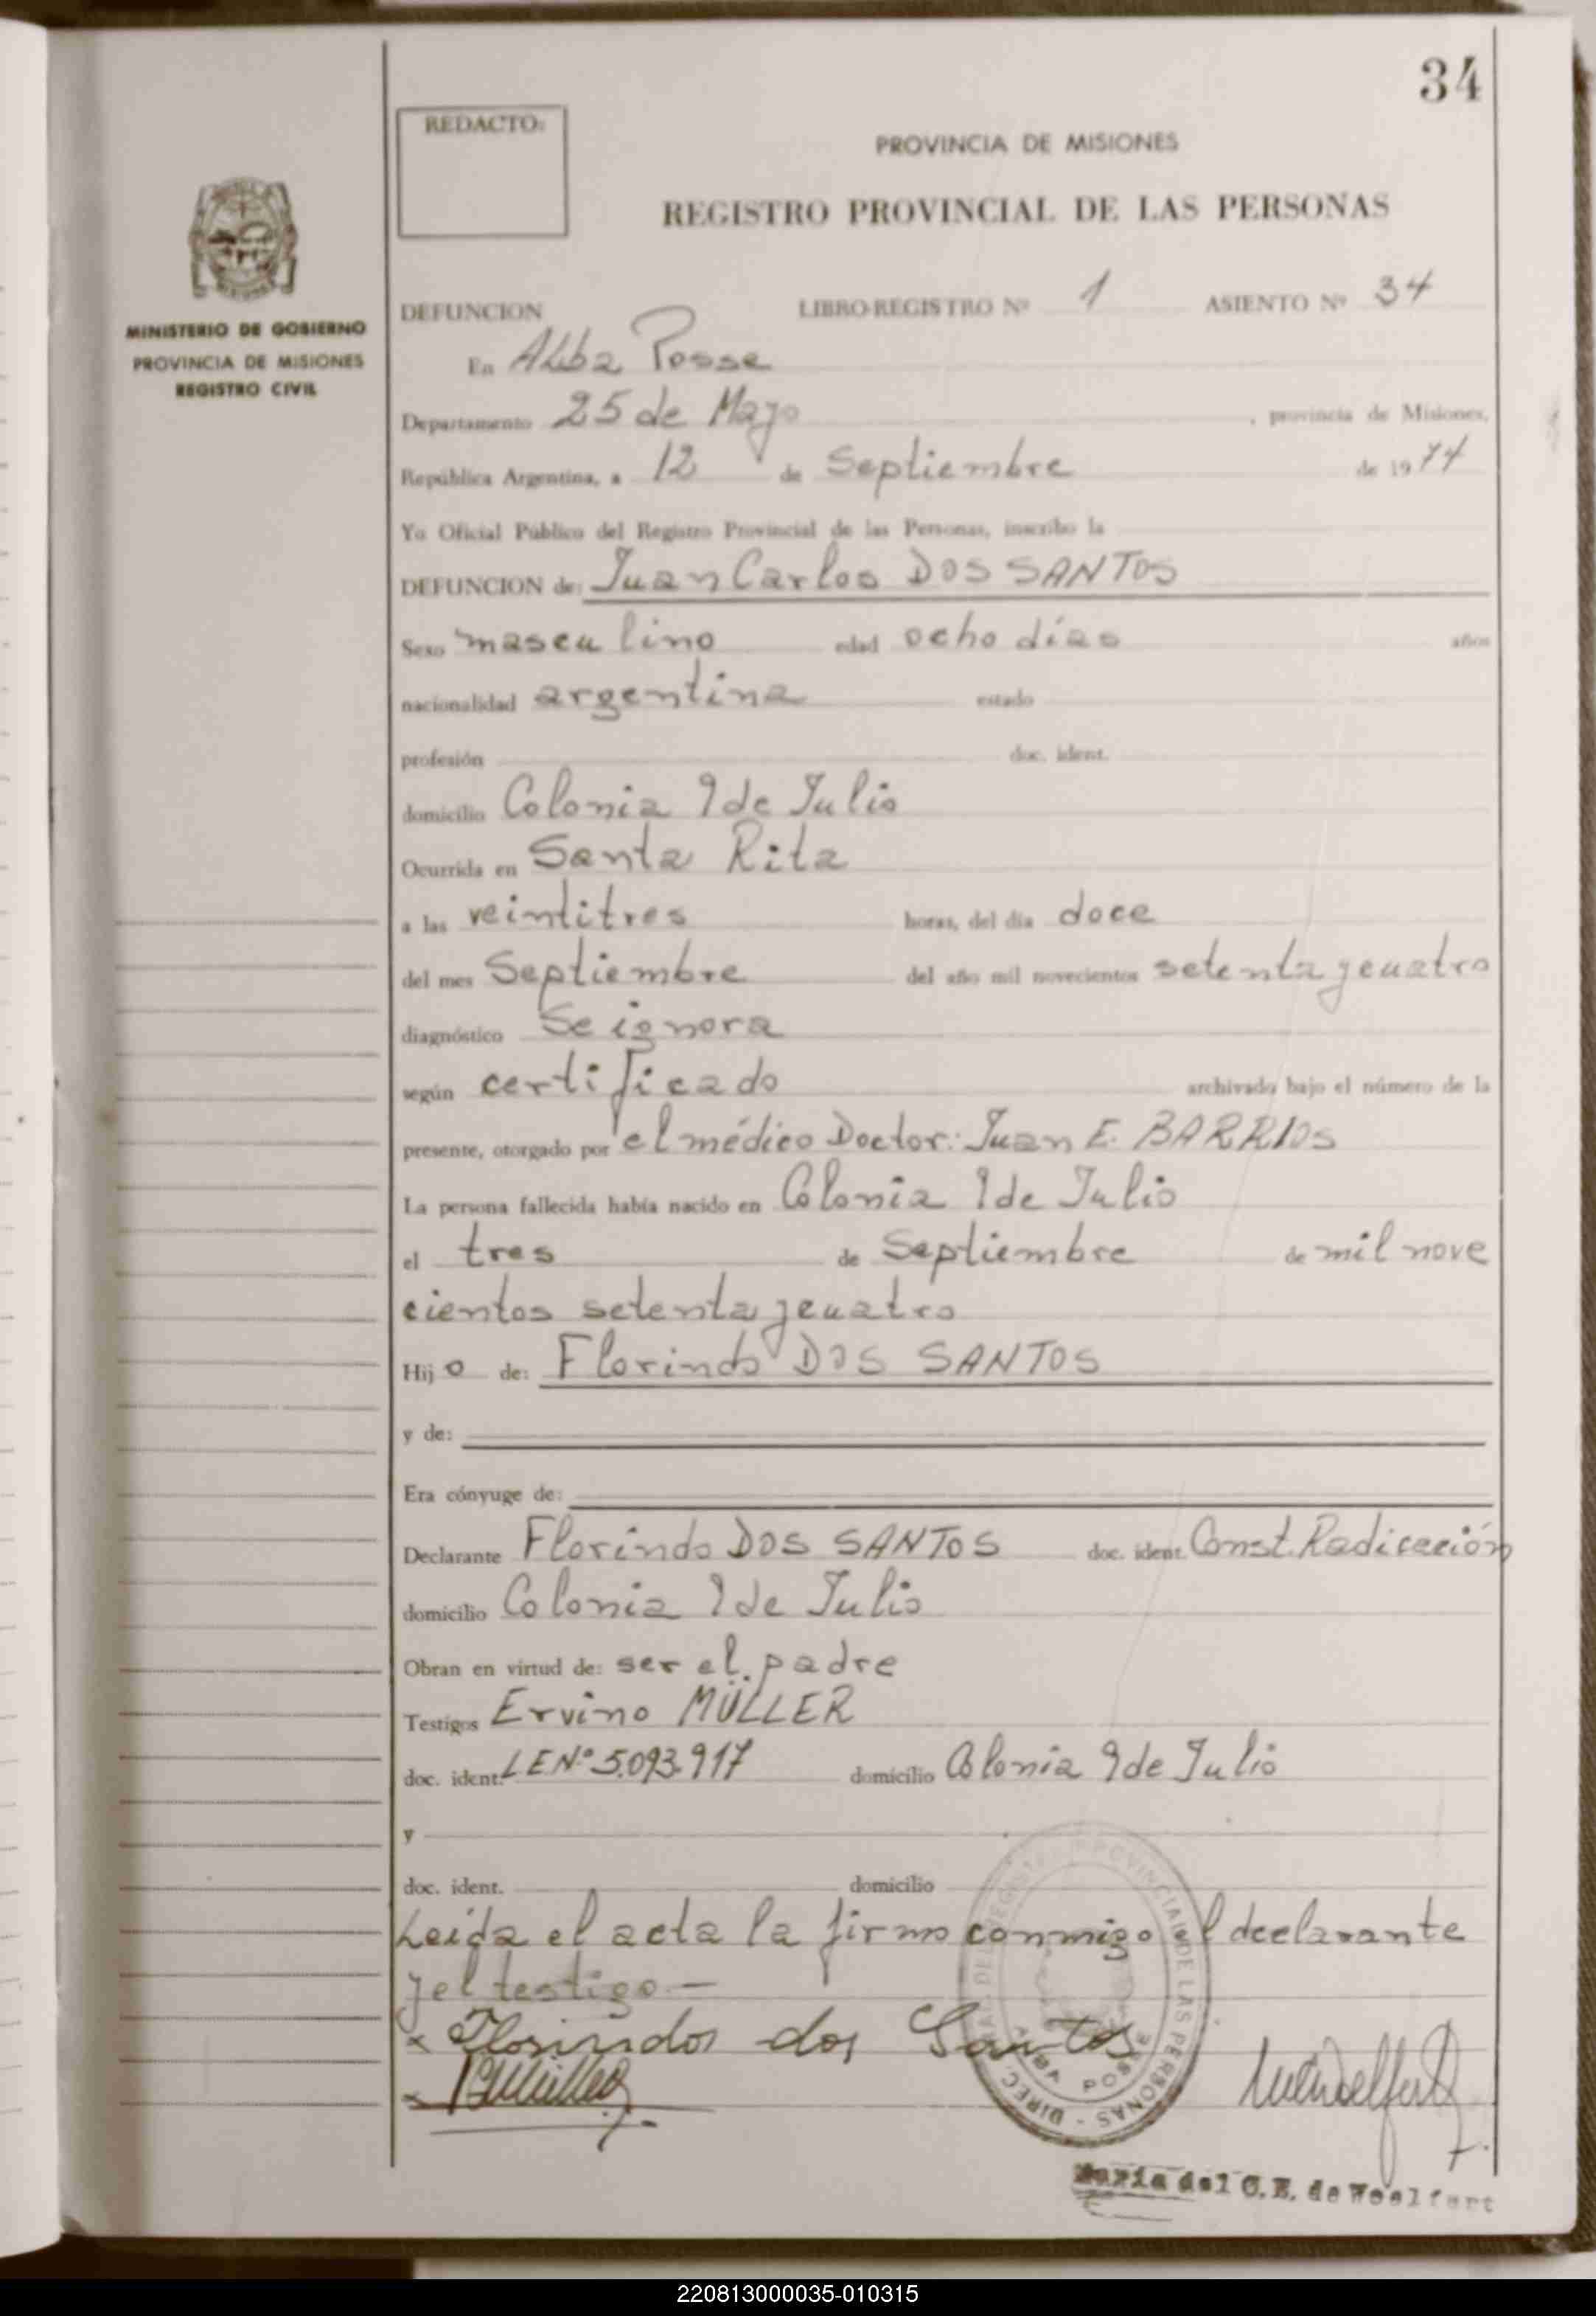 34
REDACTO:
PROVINCIA DE MISIONES
REGISTRO PROVINCIAL DE LAS PERSONAS
MINISTERIO DE GOBIERNO
PROVINCIA DE MISIONES
REGISTRO CIVIL
DEFUNCION LIBRO-REGISTRO Nº 1 ASIENTO Nº 34
En Alba Posse
Departamento 25 de Mayo , provincia de Misiones,
República Argentina, a 12 de Septiembre de 1974
Yo Oficial Público del Registro Provincial de las Personas, inscribo la
DEFUNCION de: Juan Carlos DOS SANTOS
Sexo masculino edad ocho días años
nacionalidad argentina estado
profesión doc. ident.
domicilio Colonia 9 de Julio
Ocurrida en Santa Rita
a las veintitres horas, del día doce
del mes Septiembre del año mil novecientos setenta y cuatro
diagnóstico Se ignora
según certificado archivado bajo el número de la
presente, otorgado por el médico Doctor: Juan E. BARRIOS
La persona fallecida había nacido en Colonia 9 de Julio
el tres de Septiembre de mil nove
cientos setenta y cuatro
Hijo de: Florindo DOS SANTOS
y de:
Era cónyuge de:
Declarante Florindo DOS SANTOS doc. ident. Const. Radicación
domicilio Colonia 9 de Julio
Obran en virtud de: ser el padre
Testigos Ervino MÜLLER
doc. ident. LE Nº 5.093.917 domicilio Colonia 9 de Julio
y
doc. ident. domicilio
Leída el acta la firmo conmigo el declarante
y el testigo —
x Florindos dos Santos
DIREC. GRAL. DEL REGISTRO PROVINCIAL DE LAS PERSONAS - ALBA POSSE
María del C.E. de Woelfert
220813000035-010315